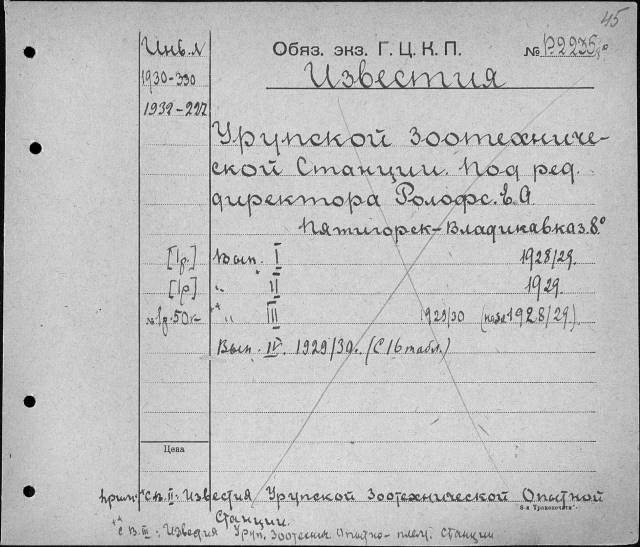 45
Инв. №
Обяз. экз. Г. Ц. К. П.
№ P2235/8°
1930-330
Известия
1932-222
Урупской Зоотехниче-
ской Станции. Под ред.
директора Ролофс. Е. А.
Пятигорск-Владикавказ. 8°
[1р.] Вып. I 1928/29.
[1р] " II 1929.
1р. 50к ++ " III 1929/30 1928/29).
Вып. IV. 1929/30. (С 16 табл.)
Цена
Прим. + С в. II: Известия Урупской Зоотехнической Опытной
Станции.
++ С В. III: Известия Уруп. Зоотехнич. Опытно-плем. Станции